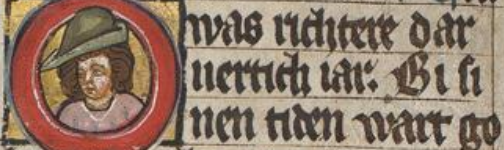 was richtere dar
uertich iar. Bi si
nen tiden wart go